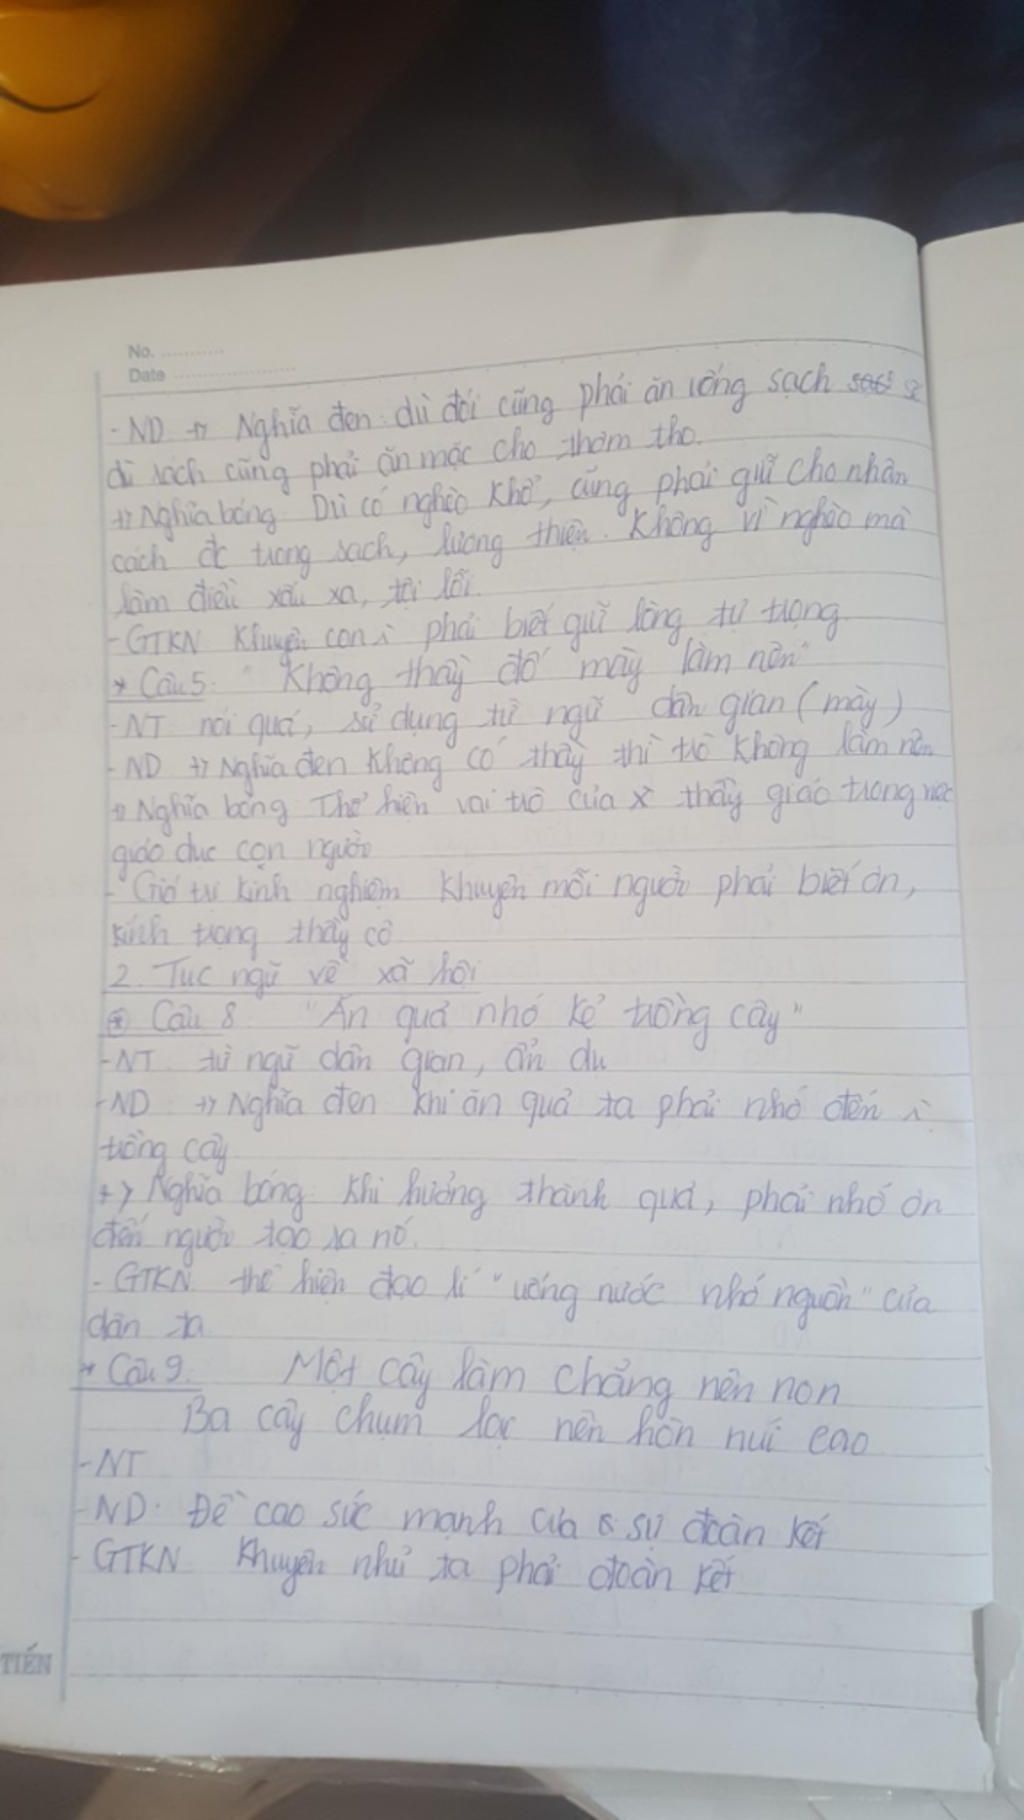 No. ............
Date ............
- ND +> Nghĩa đen: dù đói cũng phải ăn uống sạch
dù rách cũng phải ăn mặc cho thơm tho.
+> Nghĩa bóng Dù có nghèo khổ, cũng phải giữ cho nhân
cách đc trong sạch, lương thiện. Không vì nghèo mà
làm điều xấu xa, tội lỗi.
- GTKN Khuyên con phải biết giữ lòng tự trọng
* Câu 5: "Không thầy đố mày làm nên"
- NT nói quá, sử dụng từ ngữ dân gian (mày)
- ND +> Nghĩa đen Không có thầy thì trò không làm nên
+> Nghĩa bóng Thể hiện vai trò của thầy giáo trong việc
giáo dục con người
- Giá trị kinh nghiệm Khuyên mỗi người phải biết ơn,
kính trọng thầy cô
2. Tục ngữ về xã hội
* Câu 8 "Ăn quả nhớ kẻ trồng cây"
- NT. từ ngữ dân gian, ẩn dụ
- ND: +> Nghĩa đen khi ăn quả ta phải nhớ đến
trồng cây
+> Nghĩa bóng: Khi hưởng thành quả, phải nhớ ơn
đến người tạo ra nó.
- GTKN thể hiện đạo lí "uống nước nhớ nguồn" của
dân ta
* Câu 9. Một cây làm chẳng nên non
Ba cây chụm lại nên hòn núi cao
- NT
- ND: Đề cao sức mạnh của sự đoàn kết
- GTKN Khuyên nhủ ta phải đoàn kết
TIẾN